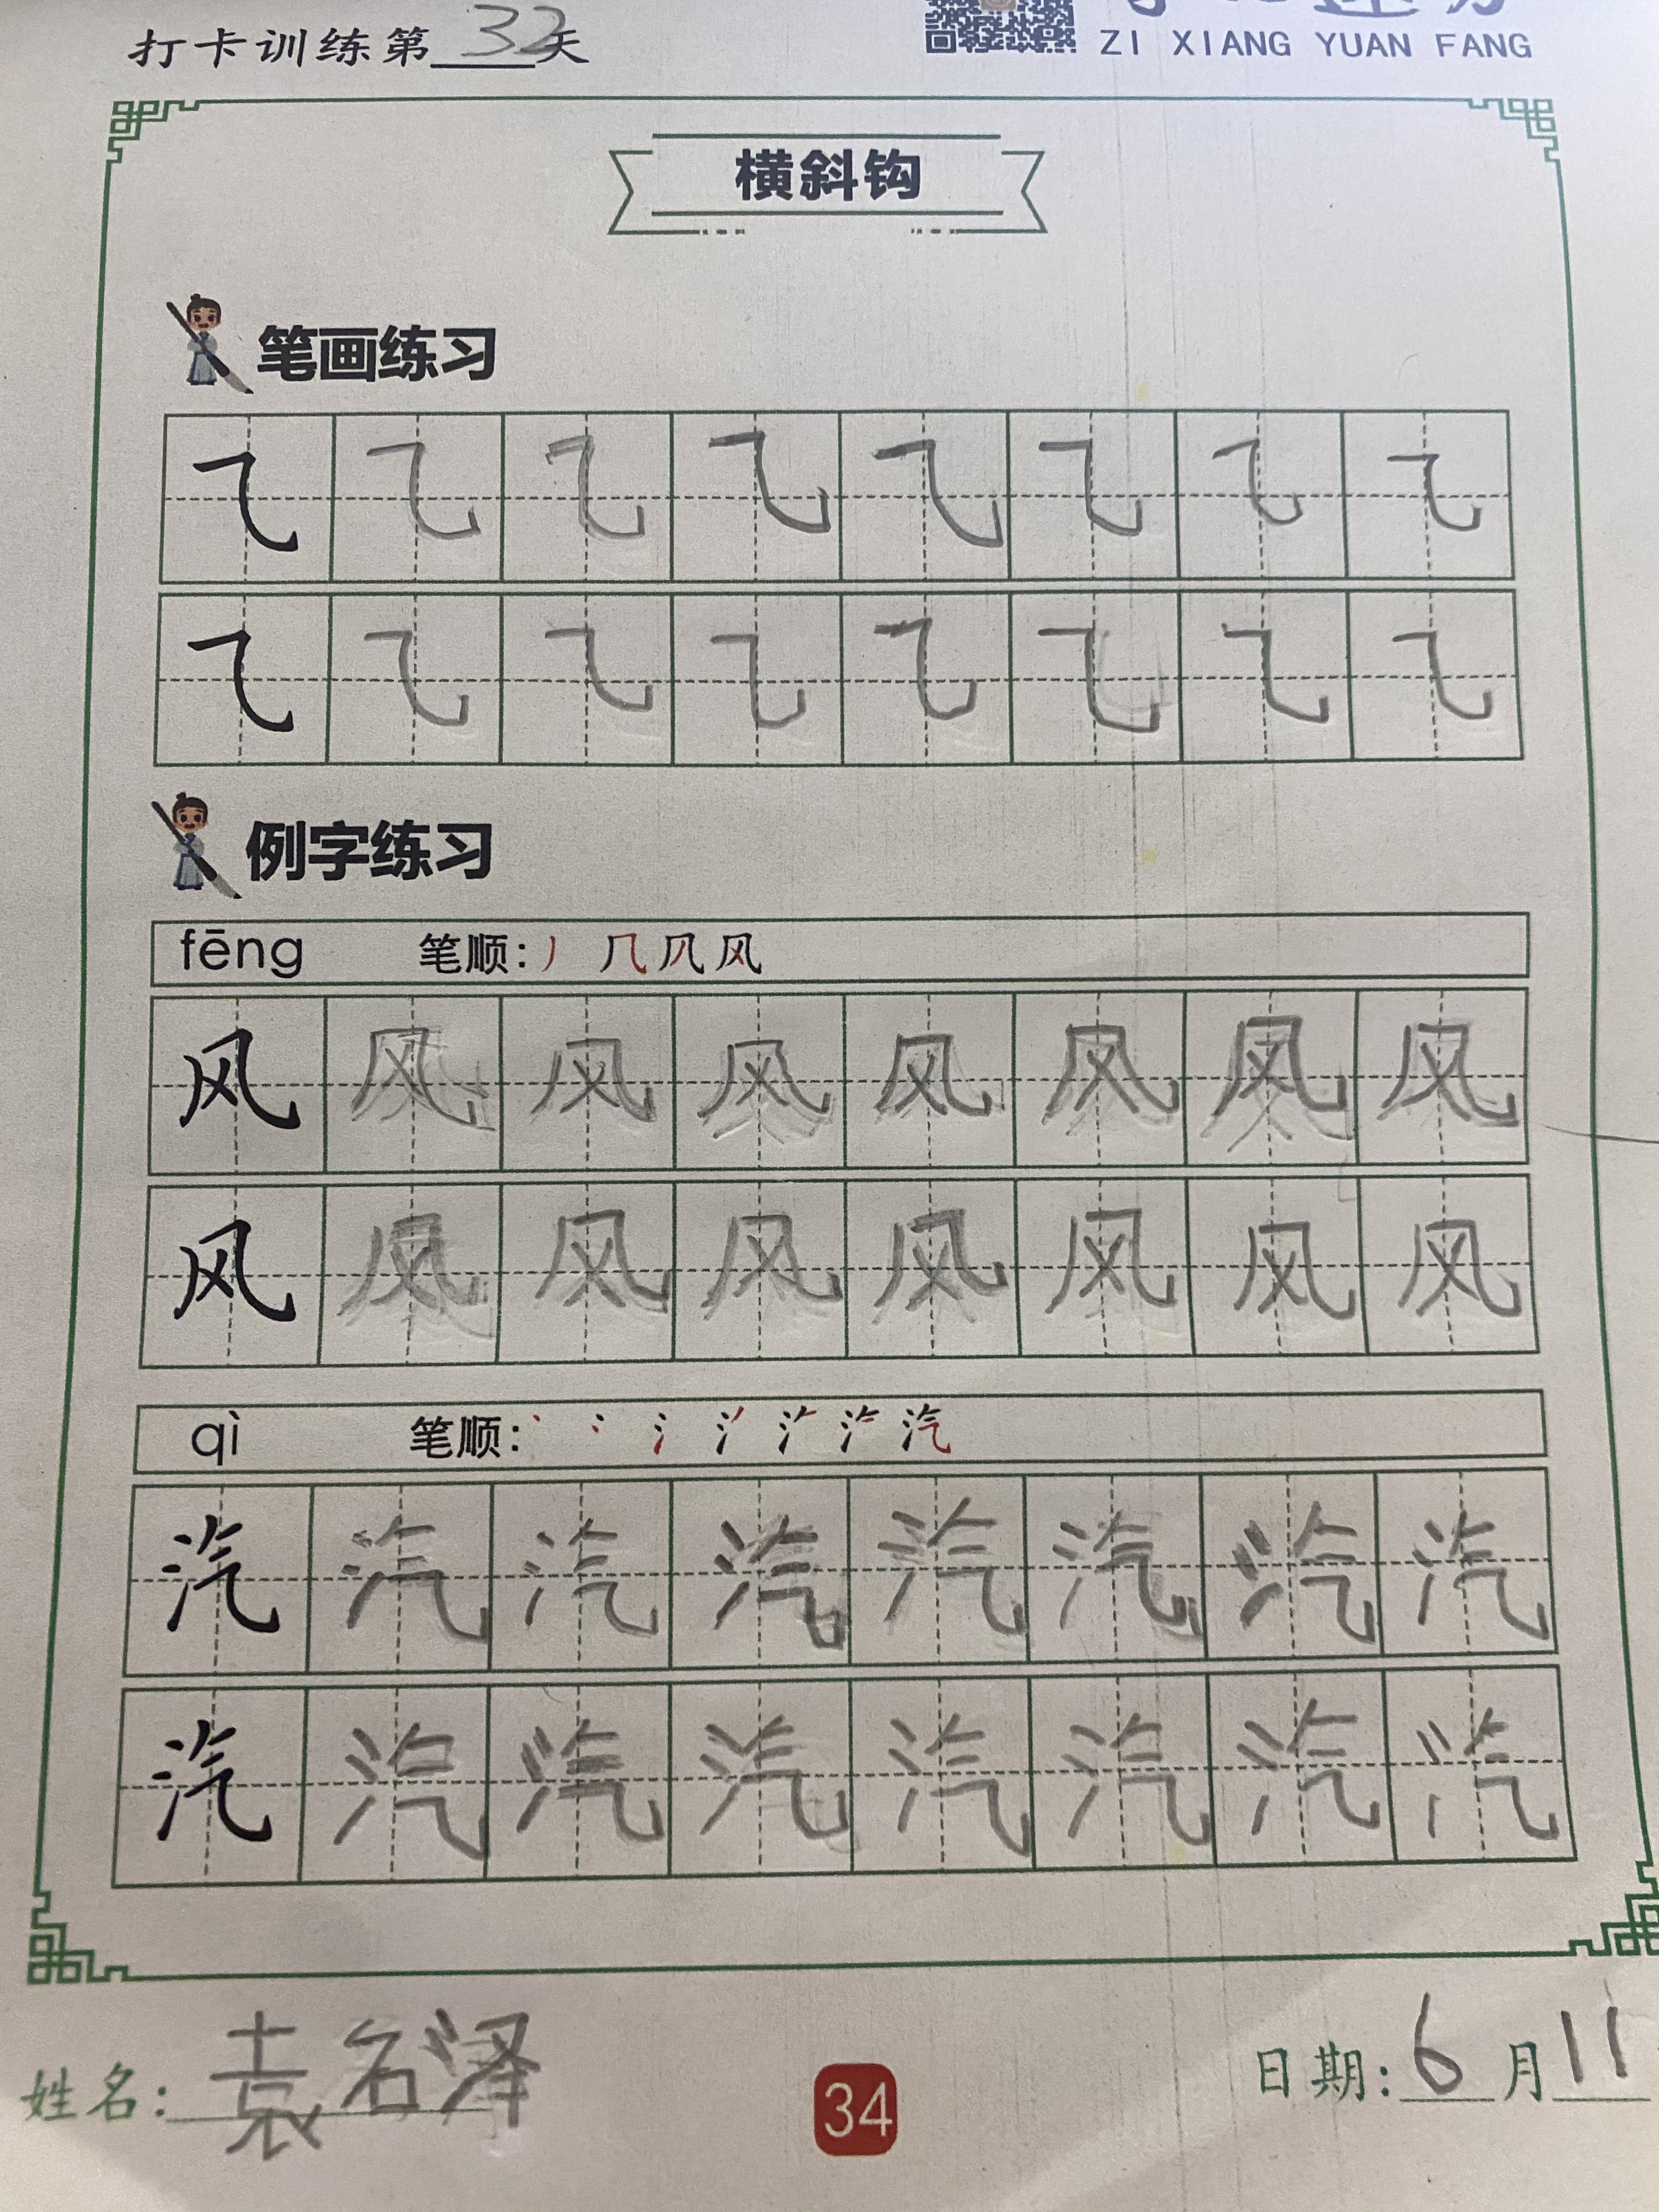 打卡训练第32天
ZI XIANG YUAN FANG
横斜钩
笔画练习
例字练习
fēng 笔顺: 丿 几 凡 风
风 风 风 风 风 风 风 风
风 风 风 风 风 风 风 风
qì 笔顺: 汽
汽 汽 汽 汽 汽 汽 汽 汽
汽 汽 汽 汽 汽 汽 汽 汽
姓名: 袁名泽
34
日期: 6月11